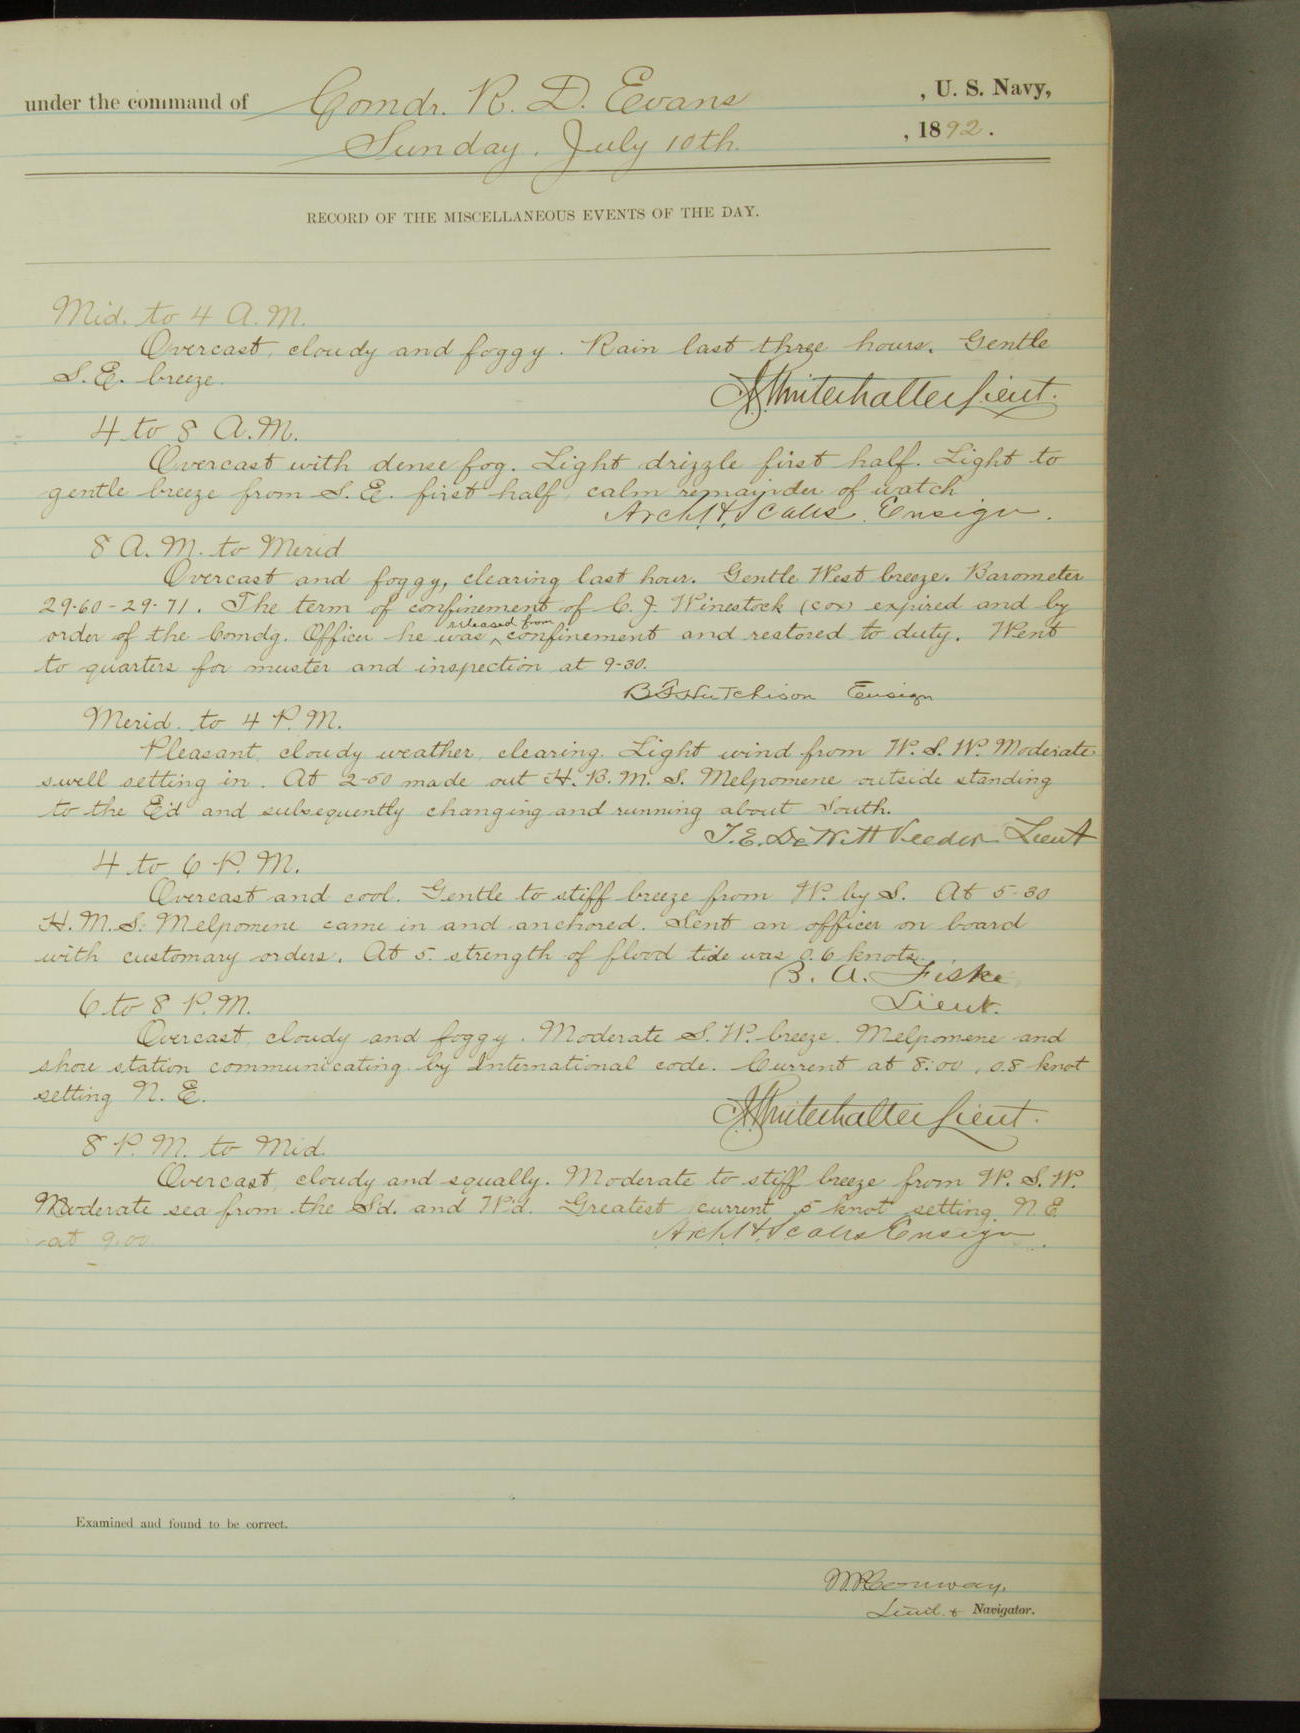 under the command of Comdr. R. D. Evans, U. S. Navy,
Sunday. July 10th., 1892.
RECORD OF THE MISCELLANEOUS EVENTS OF THE DAY.
Mid. to 4 A.M.
Overcast, cloudy and foggy. Rain last three hours. Gentle
S. E. breeze.
Winterhalter Lieut.
4 to 8 A.M.
Overcast with dense fog. Light drizzle first half. Light to
gentle breeze from S. E. first half, calm remainder of watch
Arch. H. Scales. Ensign.
8 A. M. to Merid
Overcast and foggy, clearing last hour. Gentle West breeze. Barometer
29.60 - 29.71. The term of confinement of C. J. Winestock (cox) expired and by
order of the Comdg. Officer he was ^ released from confinement and restored to duty. Went
to quarters for muster and inspection at 9-30.
B F Hutchison Ensign
Merid. to 4 P. M.
Pleasant, cloudy weather, clearing. Light wind from W. S. W. Moderate
swell setting in. At 2-50 made out H. B. M. S. Melpomene outside standing
to the E'd and subsequently changing and running about South.
T. E. DeWitt Veeder Lieut
4 to 6 P. M.
Overcast and cool. Gentle to stiff breeze from W. by S. At 5-30
H. M. S. Melpomene came in and anchored. Sent an officer on board
with customary orders. At 5. strength of flood tide was 0.6 knots.
B. A. Fiske
Lieut.
6 to 8 P. M.
Overcast, cloudy and foggy. Moderate S. W. breeze. Melpomene and
shore station communicating by International code. Current at 8:00, 0.8 knot
setting N. E.
Winterhalter Lieut.
8 P. M. to Mid.
Overcast, cloudy and squally. Moderate to stiff breeze from W. S. W.
Moderate sea from the S'd. and W'd. Greatest current .5 knot setting N. E.
at 9.00
Arch. H. Scales Ensign.
Examined and found to be correct.
Conway,
Lieut. & Navigator.